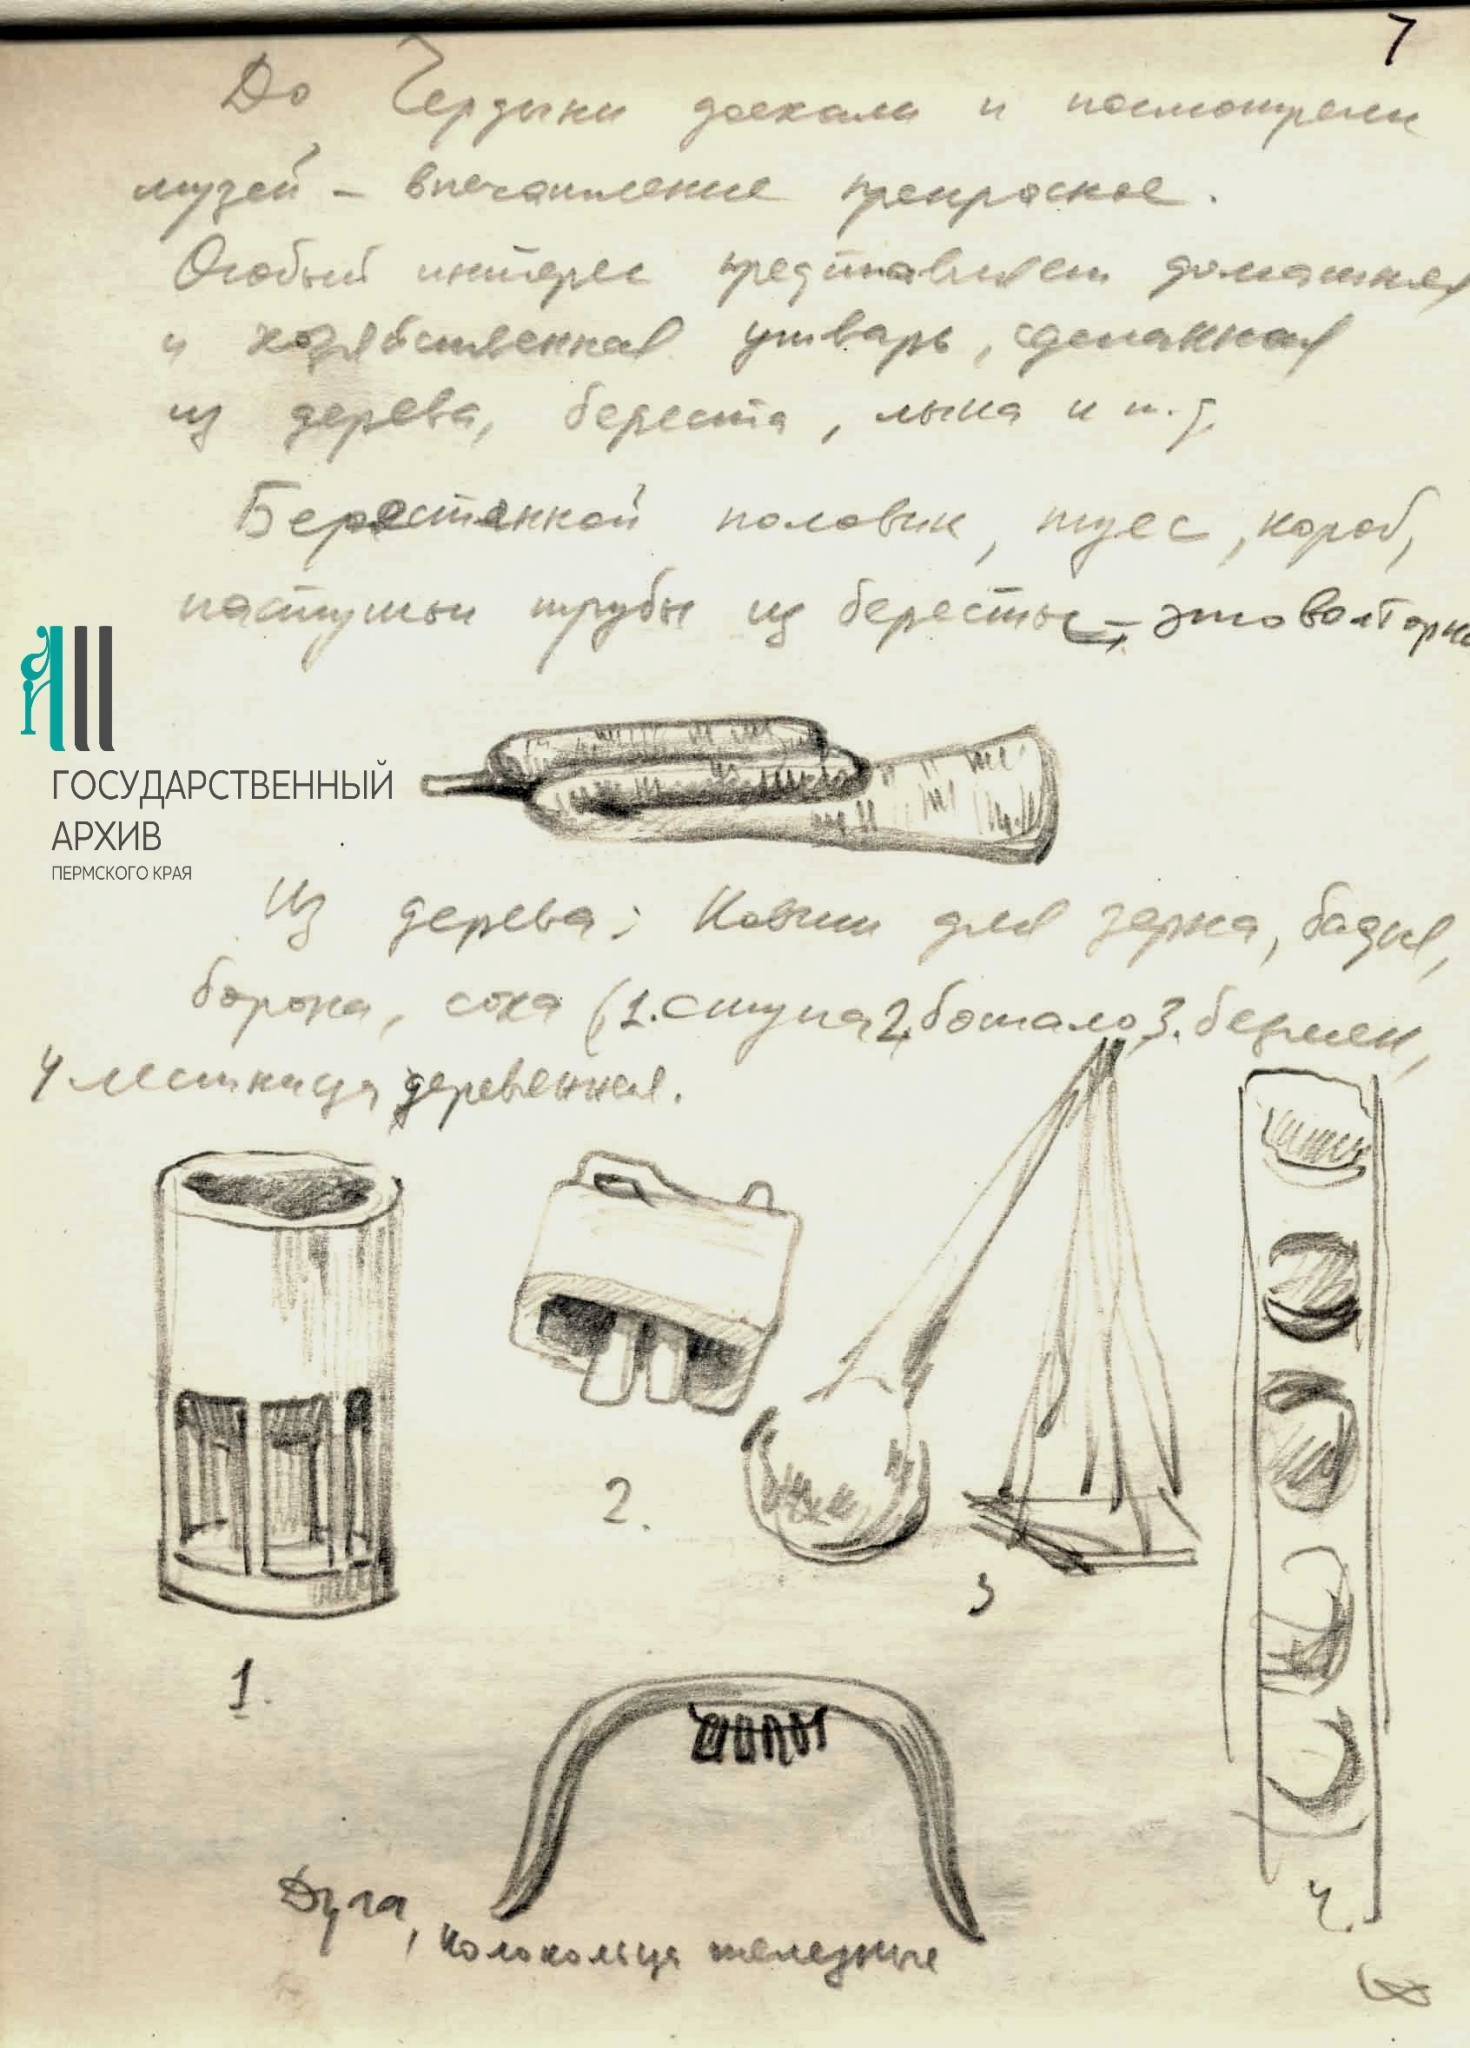 7
До Чердыни доехали и посмотрели
музей – впечатление прекрасное.
Особый интерес представляет домашняя
и хозяйственная утварь, сделанная
из дерева, береста, лыка и т.д.
Берестянной половик, туес, короб,
пастушьи трубы из бересты, – это валторна
ГОСУДАРСТВЕННЫЙ
АРХИВ
ПЕРМСКОГО КРАЯ
Из дерева: Ковши для зерна, бадья,
борона, соха (1. ступа 2. ботало, 3.
4 лестница деревенная.
1.
2.
3
4.
Дуга, колокольца железные